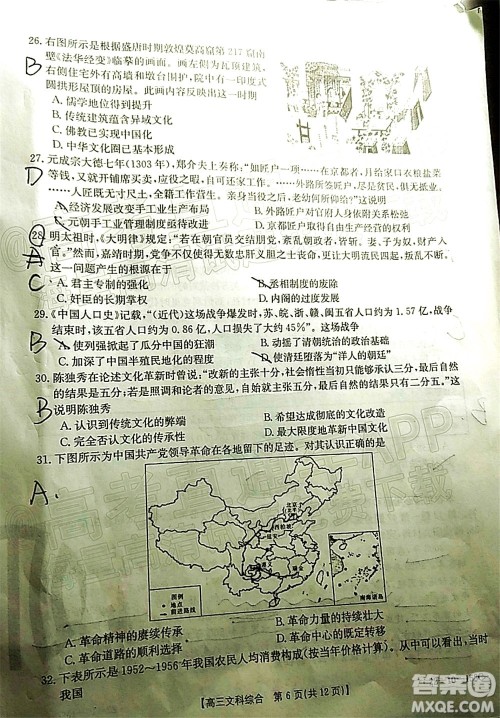 26. 右图所示是根据盛唐时期敦煌莫高窟第217窟南
壁《法华经变》临摹的画面。画左侧为瓦顶建筑,
B
右侧住宅外有高墙和墩台围护,院中有一印度式
圆拱形屋顶的房屋。此画内容反映出这一时期
A. 儒学地位得到提升
B. 传统建筑蕴含异域文化
C. 佛教已实现中国化
D. 中华文化圈已基本形成
27. 元成宗大德七年(1303年),郑介夫上奏称:“如匠户一项……在京都者,月给家口粮盐菜
D
等钱,又就开铺席买卖,应役之暇,自可还家工作。……外路所签匠户,尽是贫民,俱无抵业。
……人匠既无寸尺土,全籍工作营生。亲身当役之后,老幼何所仰给?”这说明
A. 经济发展改变手工业生产布局
B. 外路匠户对政府人身依附关系松弛
C. 元朝手工业管理制度亟待改进
D. 京都匠户与外路匠户贫富差距悬殊
28. 明太祖时,《大明律》规定:“若在朝官员交结朋党,紊乱朝政者,皆斩。妻、子为奴,财产入
A
官。”然而,嘉靖时期,官僚集团内部争权夺利不仅肆无忌惮之士丧命,更让大明流民四起,叛乱不断。
C
这一问题产生的根源在于
A. 君主专制的强化
B. 丞相制度的废除
C. 奸臣的长期掌权
D. 内阁的治阁度
29. 《中国人口史》记载:“(近代)这场战争爆发时,苏、皖、浙、赣、闽五省人口约为1.57亿,战争
B
结束时,该五省人口约为0.86亿,人口损失了大约45%”。这场战争
A. 使列强掀起了瓜分中国的狂潮
B. 动摇了清朝统治的政治基础
C. 加深了中国半殖民地化的程度
D. 使清廷堕落为“洋人的朝廷”
30. 陈独秀在论述文化革新时曾说:“改新的主张十分,社会惰性当初只能够承认三分,最后自然
B
的结果是五分;若是照调和论者的意见,自始就主张五分,最后自然的结果只有二分五。”这
说明陈独秀
A. 认识到传统文化的弊端
B. 希望达成彻底的文化改造
C. 完全否定文化的传承性
D. 最大限度地革新本国文化
31. 下图所示为中国共产党领导革命在各地留下的足迹。对其认识正确的是
A.
北京
西柏坡
延安
遵义
瑞金
图例
地点
前进路线
南海诸岛
A. 革命精神的赓续传承
B. 革命力量的持续壮大
C. 革命道路的顺利发展
D. 革命中心的既定转移
32. 下表所示是1952~1956年我国农民人均消费构成(按当年价格计算)。从中可以看出,当时
我国
【高三文科综合 第6页(共12页)】
答案圈